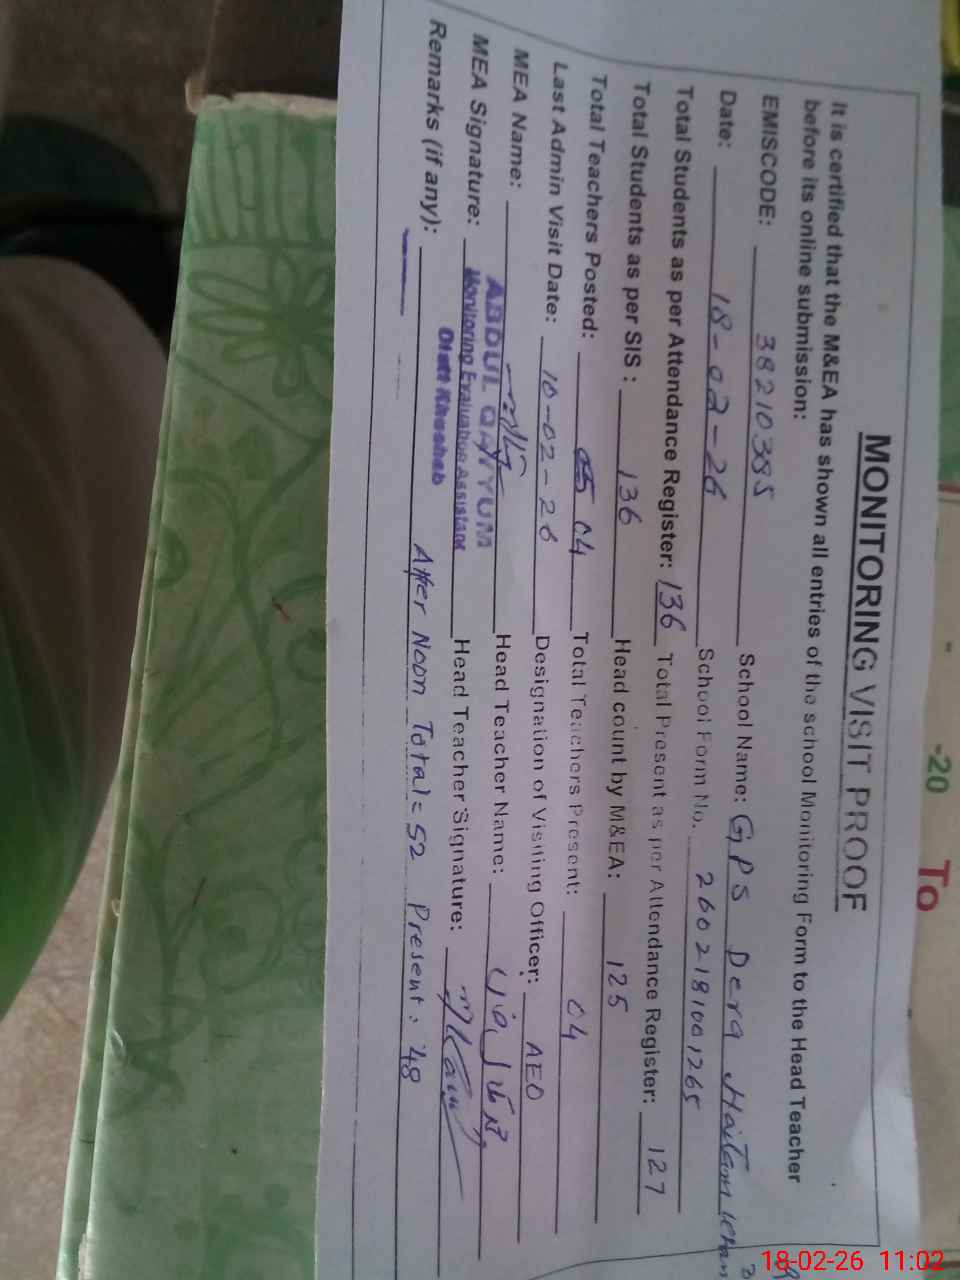 MONITORING VISIT PROOF
It is certified that the M&EA has shown all entries of the school Monitoring Form to the Head Teacher
before its online submission:
EMISCODE: 38210385 School Name: GPS Dera Haitam Khan
Date: 18-02-26 School Form No. 2602181001265
Total Students as per Attendance Register: 136 Total Present as per Attendance Register: 127
Total Students as per SIS : 136 Head count by M&EA: 125
Total Teachers Posted: 04 Total Teachers Present: 04
Last Admin Visit Date: 10-02-26 Designation of Visiting Officer: AEO
MEA Name: ABDUL QAYYUM Head Teacher Name:
MEA Signature: Monitoring Evaluation Assistant Head Teacher Signature:
Distt Khushab
Remarks (if any): After Noon Total= 52 Present: 48
-20 To
18-02-26 11:02